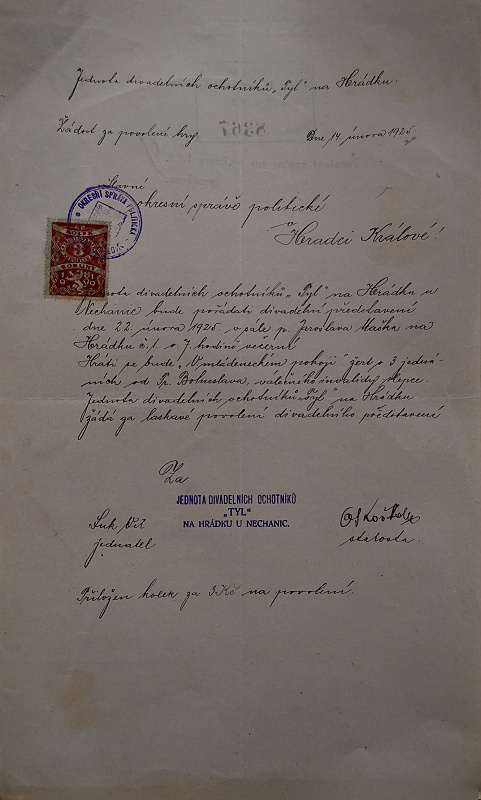 Jednota divadelních ochotníků „Tyl" na Hrádku.
8367
Žádost za povolení hry.
Dne 14. února 1925
Slavné
okresní správě politické
v
Hradci Králové!
OKRESNÍ SPRÁVA POLITICKÁ
KOLEK
3
KORUNY
Jednota divadelních ochotníků „Tyl" na Hrádku u
Nechanic bude pořádati divadelní představení
dne 22. února 1925 v sále p. Jaroslava Maška na
Hrádku č. 1 o 7. hodině večerní
Hráti se bude „V mládeneckém pokoji" žert o 3 jedná-
ních od Fr. Bohuslava, válečného invalidy slepce.
Jednota divadelních ochotníků „Tyl" na Hrádku
žádá za laskavé povolení divadelního představení
Za
JEDNOTA DIVADELNÍCH OCHOTNÍKŮ
„TYL"
NA HRÁDKU U NECHANIC.
jednatel
starosta.
Přiložen kolek za 3 Kč na povolení.